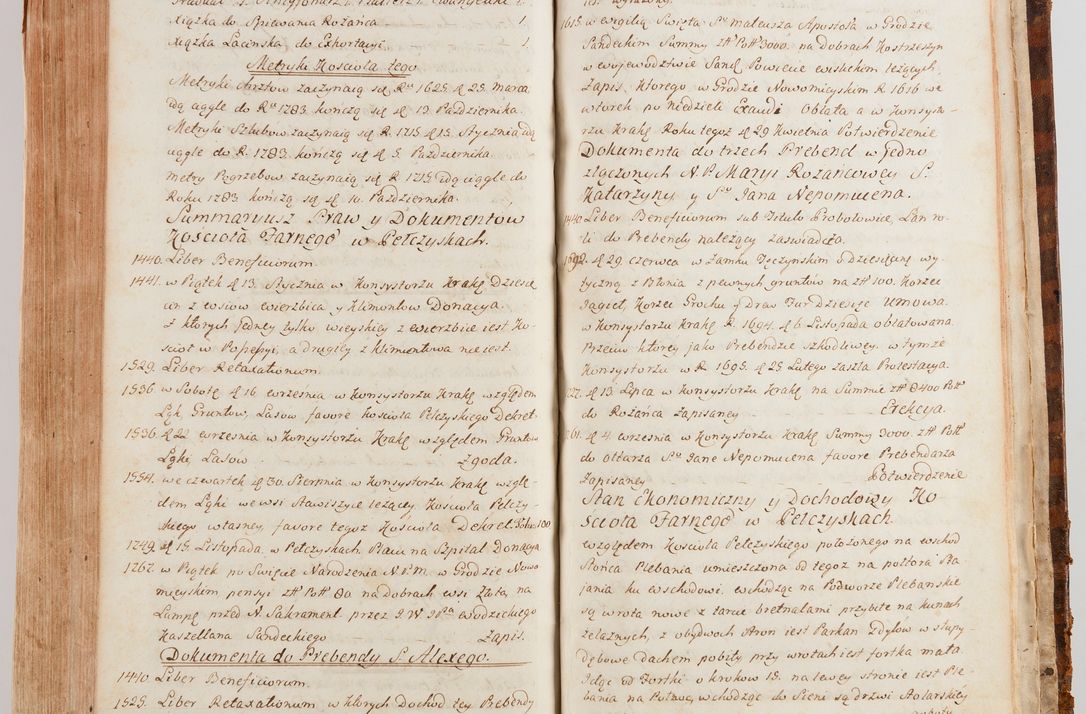 xiążka do Spiewania Rożańca — 1.
xiążka Łacinska do Exhortacyi — 1.
Metryki Kościoła tego
Metryki Chrztow zaczynaią się Ru 1625 d 25. marca
idą ciągle do Ru 1783 kończą się d 13 Pazdziernika.
Metryki Szlubow zaczynaią się R. 1715 d 15. Stycznia idą
ciągle do R. 1783. kończą się d 5. Pazdziernika
metry Pogrzebow zaczynaią się R 1715 idą ciągle do
Roku 1783 kończą się d 10. Pazdziernika.
Summaryusz Praw y Dokumentow
Kościoła Farnego w Pełczyskach.
1440. Liber Beneficiorum.
1441. w Piątek d 13. Stycznia w Konsystorzu Krakę Dziesię
cin z wsiow Wierzbica y Klimontow Donacya.
z ktorych jedney tylko wieyskiey z Wierzbic iest Ko-
scioł w Posessyi, a drugiey z Klimontowa nie iest.
1529. Liber Retaxationum.
1536. w Sobotę d 16 Wrzesnia w Konsystorzu Krakę względem
Łąk Gruntow, Lasow favore Kościoła Pelczyskiego Dekret.
1536. d 22 wrzesnia w Konsystorzu Krakę względem Gruntow
Łąki, Lasow zgoda.
1554. we czwartek d 30. Sierpnia w Konsystorzu Krakę wzglę-
dem Łąki we wsi Stawiszyce leżącey Kościoła Pelczy-
skiego własney favore tegoż Kościoła Dekret
1749. d 15. Listopada, w Pełczyskach Placu na Szpital Donacya
1767. w Piątek po Swięcie Narodzenia N.P.M. w Grodzie Nowo
mieyskim pensyi złł Poll 80 na Dobrach wsi Zata, na
Lampę przed N. Sakrament przez J.W. JPa Wodzickiego
Kasztellana Sandeckiego Zapis.
Dokumenta do Prebendy S. Alexego.
1440. Liber Beneficiorum.
1529. Liber Retaxationum, w ktorych Dochod tey Prebendy
iest wyrażony.
1615. w wigilią Swięta Sgo Mateusza Apostoła w Grodzie
Sandeckim Summy złł Poll 3000. na Dobrach Kostrzeszyn
w woiewodztwie Sand. Powiecie wislickim leżących
Zapis, ktorego w Grodzie Nowomieyskim R 1616 we
wtorek po Niedzieli Exaudi Oblata a w Konsysto-
rzu Krakę Roku tegoż d 29 Kwietnia Potwierdzenie
Dokumenta do trzech Prebend w jedno
złączonych N.P. Maryi Rożańcowey S.
Katarzyny y Sgo Jana Nepomucena.
1440. Liber Beneficiorum sub Titulo Probołowice, Łan ro-
li do Prebendy należący zaswiadcza.
1692. d 29. czerwca w Zamku Tęczynskim o Dziesięcinę wy-
tyczną z Błonia z pewnych gruntow na złł 100. Korzec
Jagieł, Korzec Grochu y Drew Fur Dziesięć Umowa.
w Konsystorzu Krakę R. 1694. d 6 Listopada oblatowana.
Przeciw ktorey jako Prebendzie szkodliwey w tymże
Konsystorzu w R. 1695. d 25 Lutego zaszła Protestacya.
d 13 Lipca w Konsystorzu Krakę na Summie złł 8400 Poll
do Rożańca zapisaney Erekcya.
d 4. wrzesnia w Konsystorzu Krakę Summy 3000. złł Poll
do ołtarza Sgo Jana Nepomucena favore Prebendarza
zapisaney Potwierdzenie
Stan Ekonomiczny y Dochodowy Ko-
ścioła Farnego w Pełczyskach.
względem Kościoła Pelczyskiego położonego na wschod
Słońca Plebania umieszczona od tegoż na połtora Sta-
jania ku wschodowi. wchodząc na Podworze Plebanskie
są wrota nowe z tarcic bretnalami przybite na kunach
żelaznych, z obydwoch stron iest Parkan z Dylow w słupy
dębowe dachem pobity przy wrotach iest fortka mała.
Idąc od Fortki o krokow 15. na lewey stronie iest Ple-
bania na Połnoc, wchodząc do Sieni są drzwi Stolarskiey
roboty